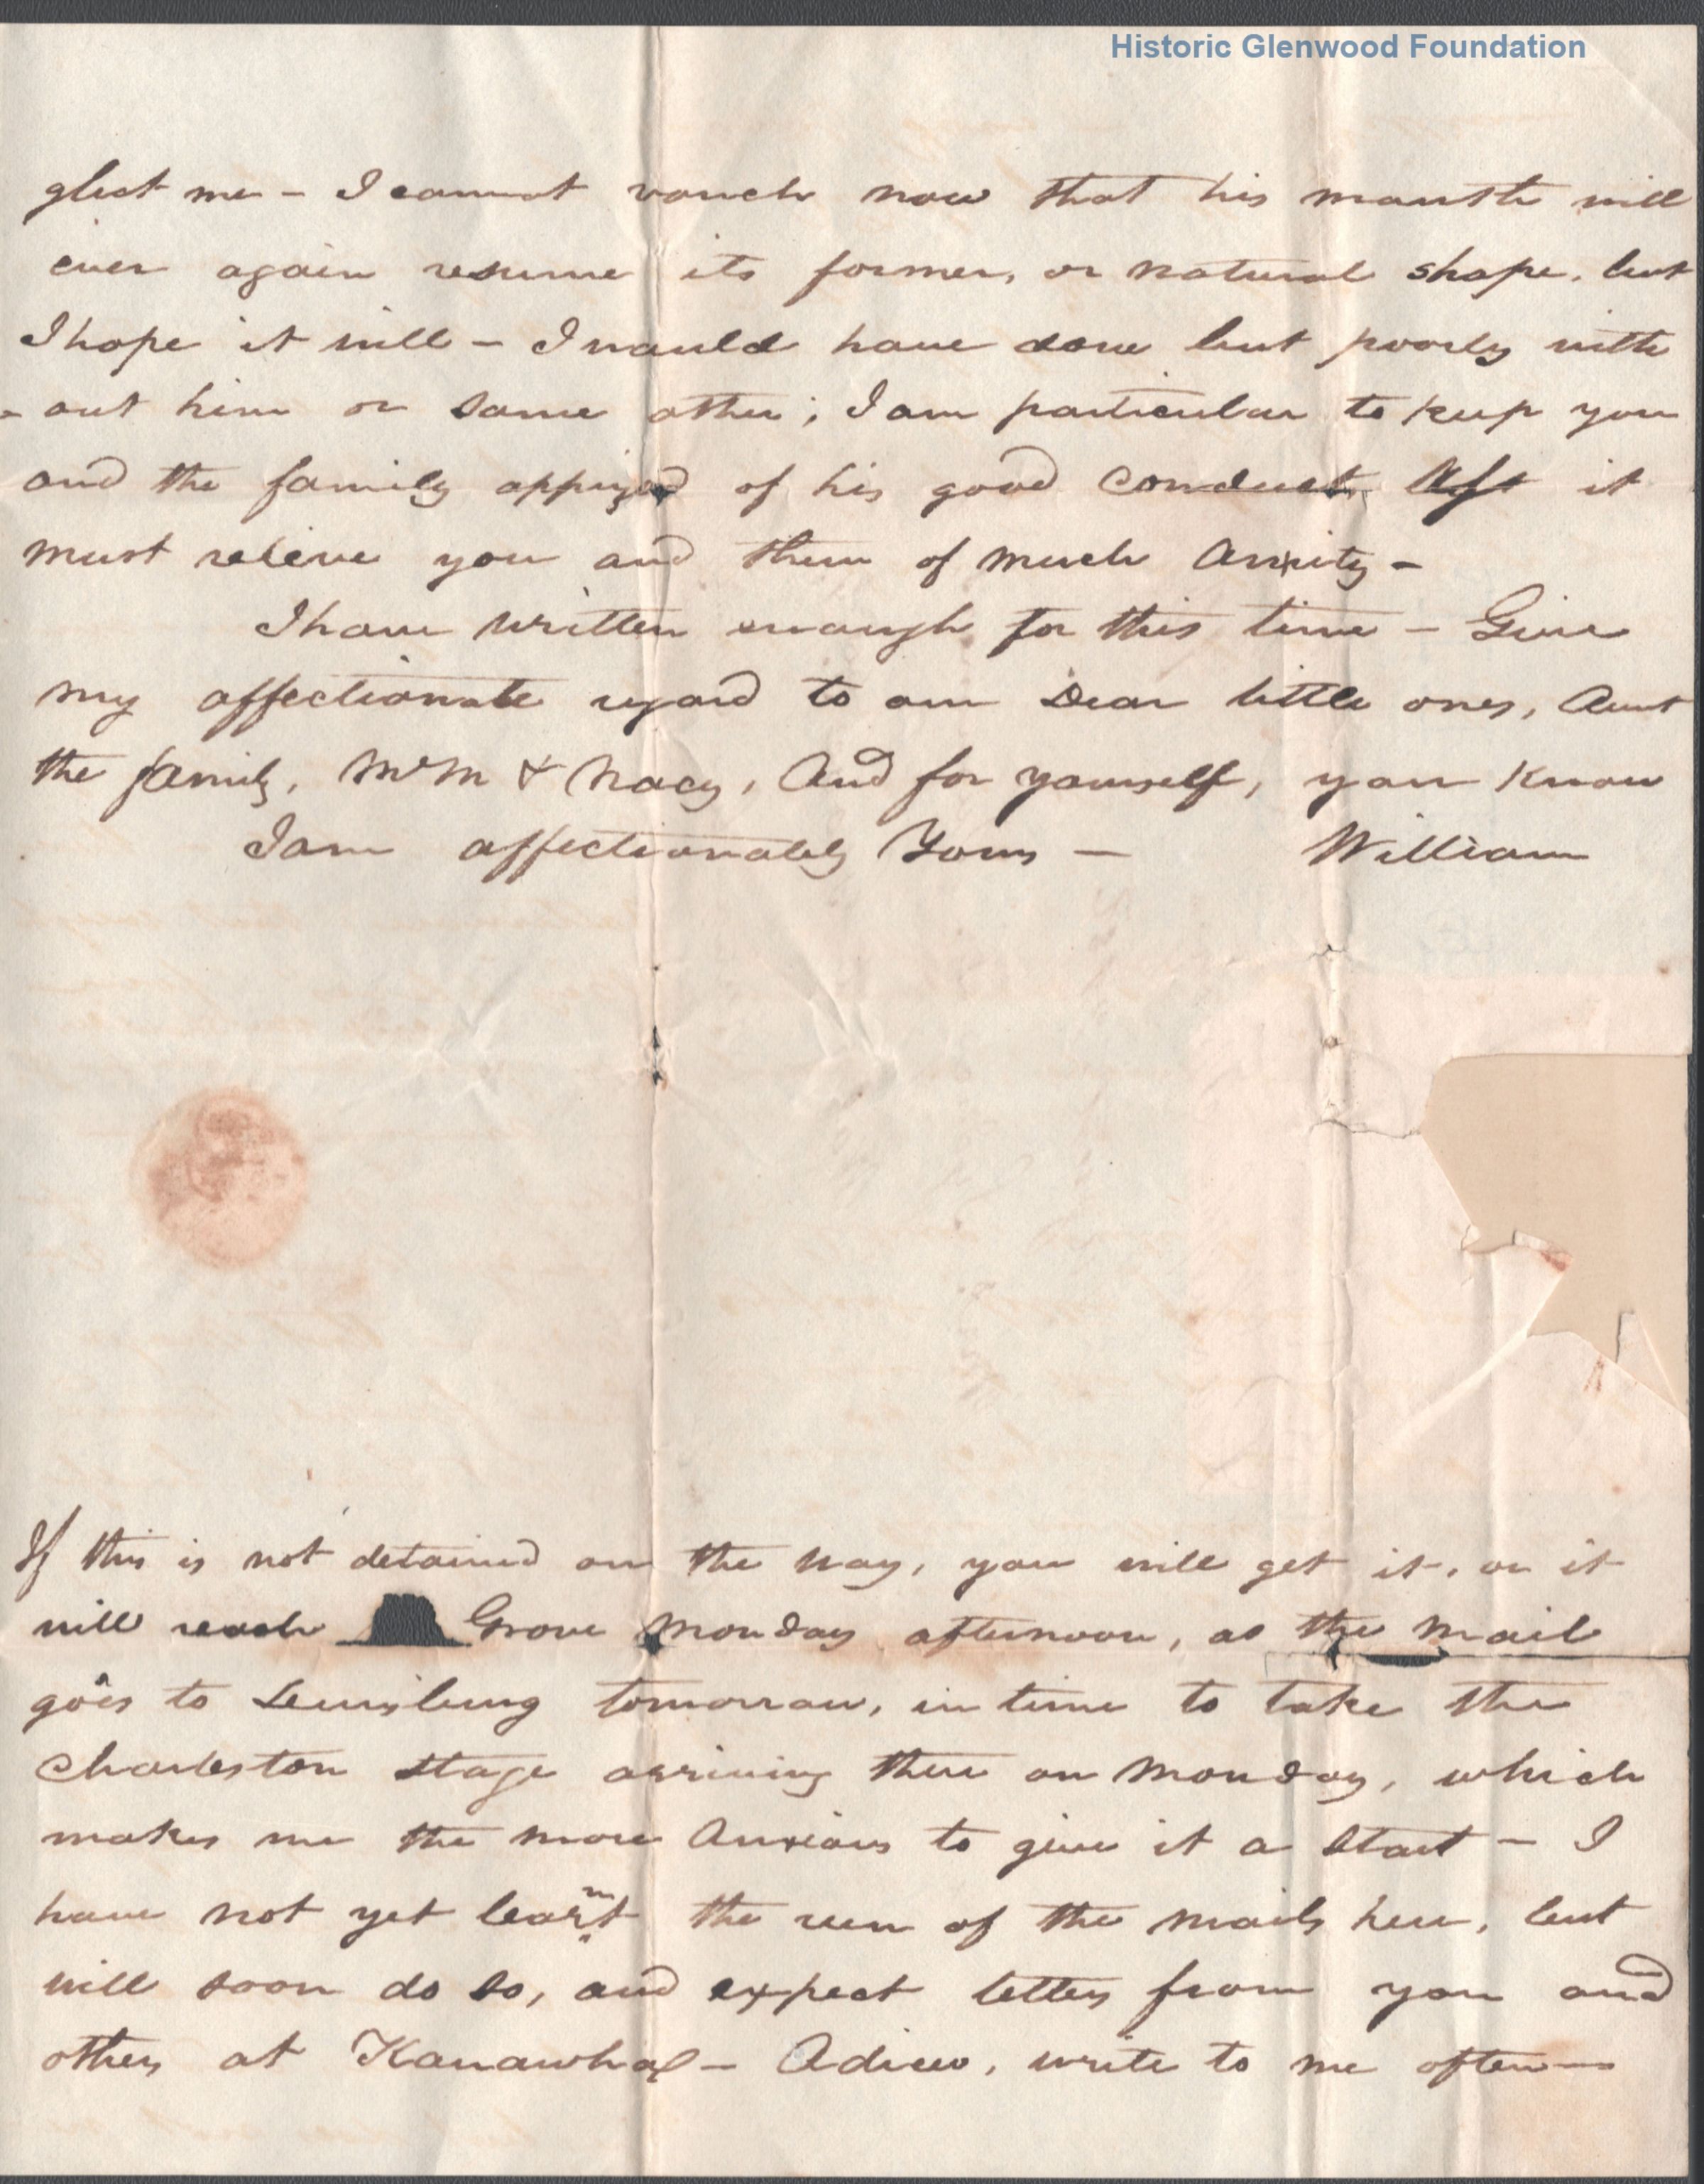 Historic Glenwood Foundation
glect me - I cannot vouch now that his mouth will
ever again resume its former, or natural shape, but
I hope it will - I would have done but poorly with
- out him or some other; I am particular to keep you
and the family apprized of his good conduct, as it
must releive you and them of much anxity -
I have written enough for this time - Give
my affectionate regard to our Dear little ones, Aunt
the family, Mr M & Nacy, And for yourself, you know
I am affectionately Yours - William
If this is not detained on the way, you will get it, or it
will reach Grove Monday afternoon, as the mail
goes to Lewisburg tomorrow, in time to take the
Charleston stage arriving there on Monday, which
makes me the more Anxious to give it a start - I
have not yet learnt the run of the mails here, but
will soon do so, and expect letters from you and
others at Kanawha - Adieu, write to me often -